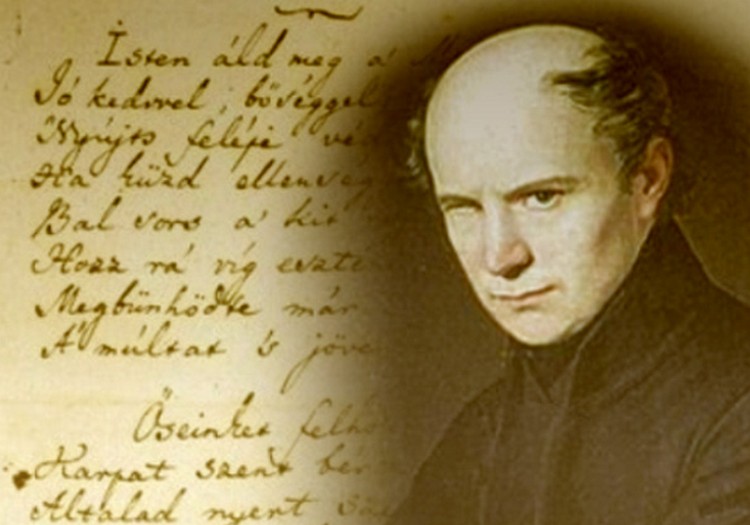 Isten áld meg a' M
Jó kedvvel, bőséggel
Nyújts feléje vé
Ha küzd ellenség
Bal sors a' kit
Hozz rá víg eszte
Megbünhödte már
A' múltat 's jöve
Őseinket felho
Karpat szent bér
Általad nyert sz